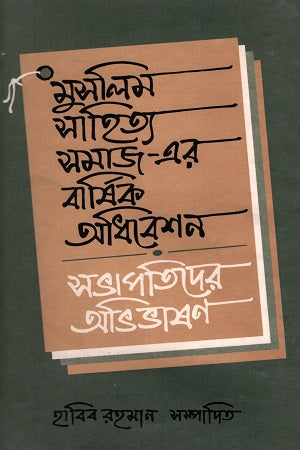 মুসলিম
সাহিত্য
সমাজ-এর
বার্ষিক
অধিবেশন
সভাপতিদের
অভিভাষণ
হাবিব রহমান সম্পাদিত